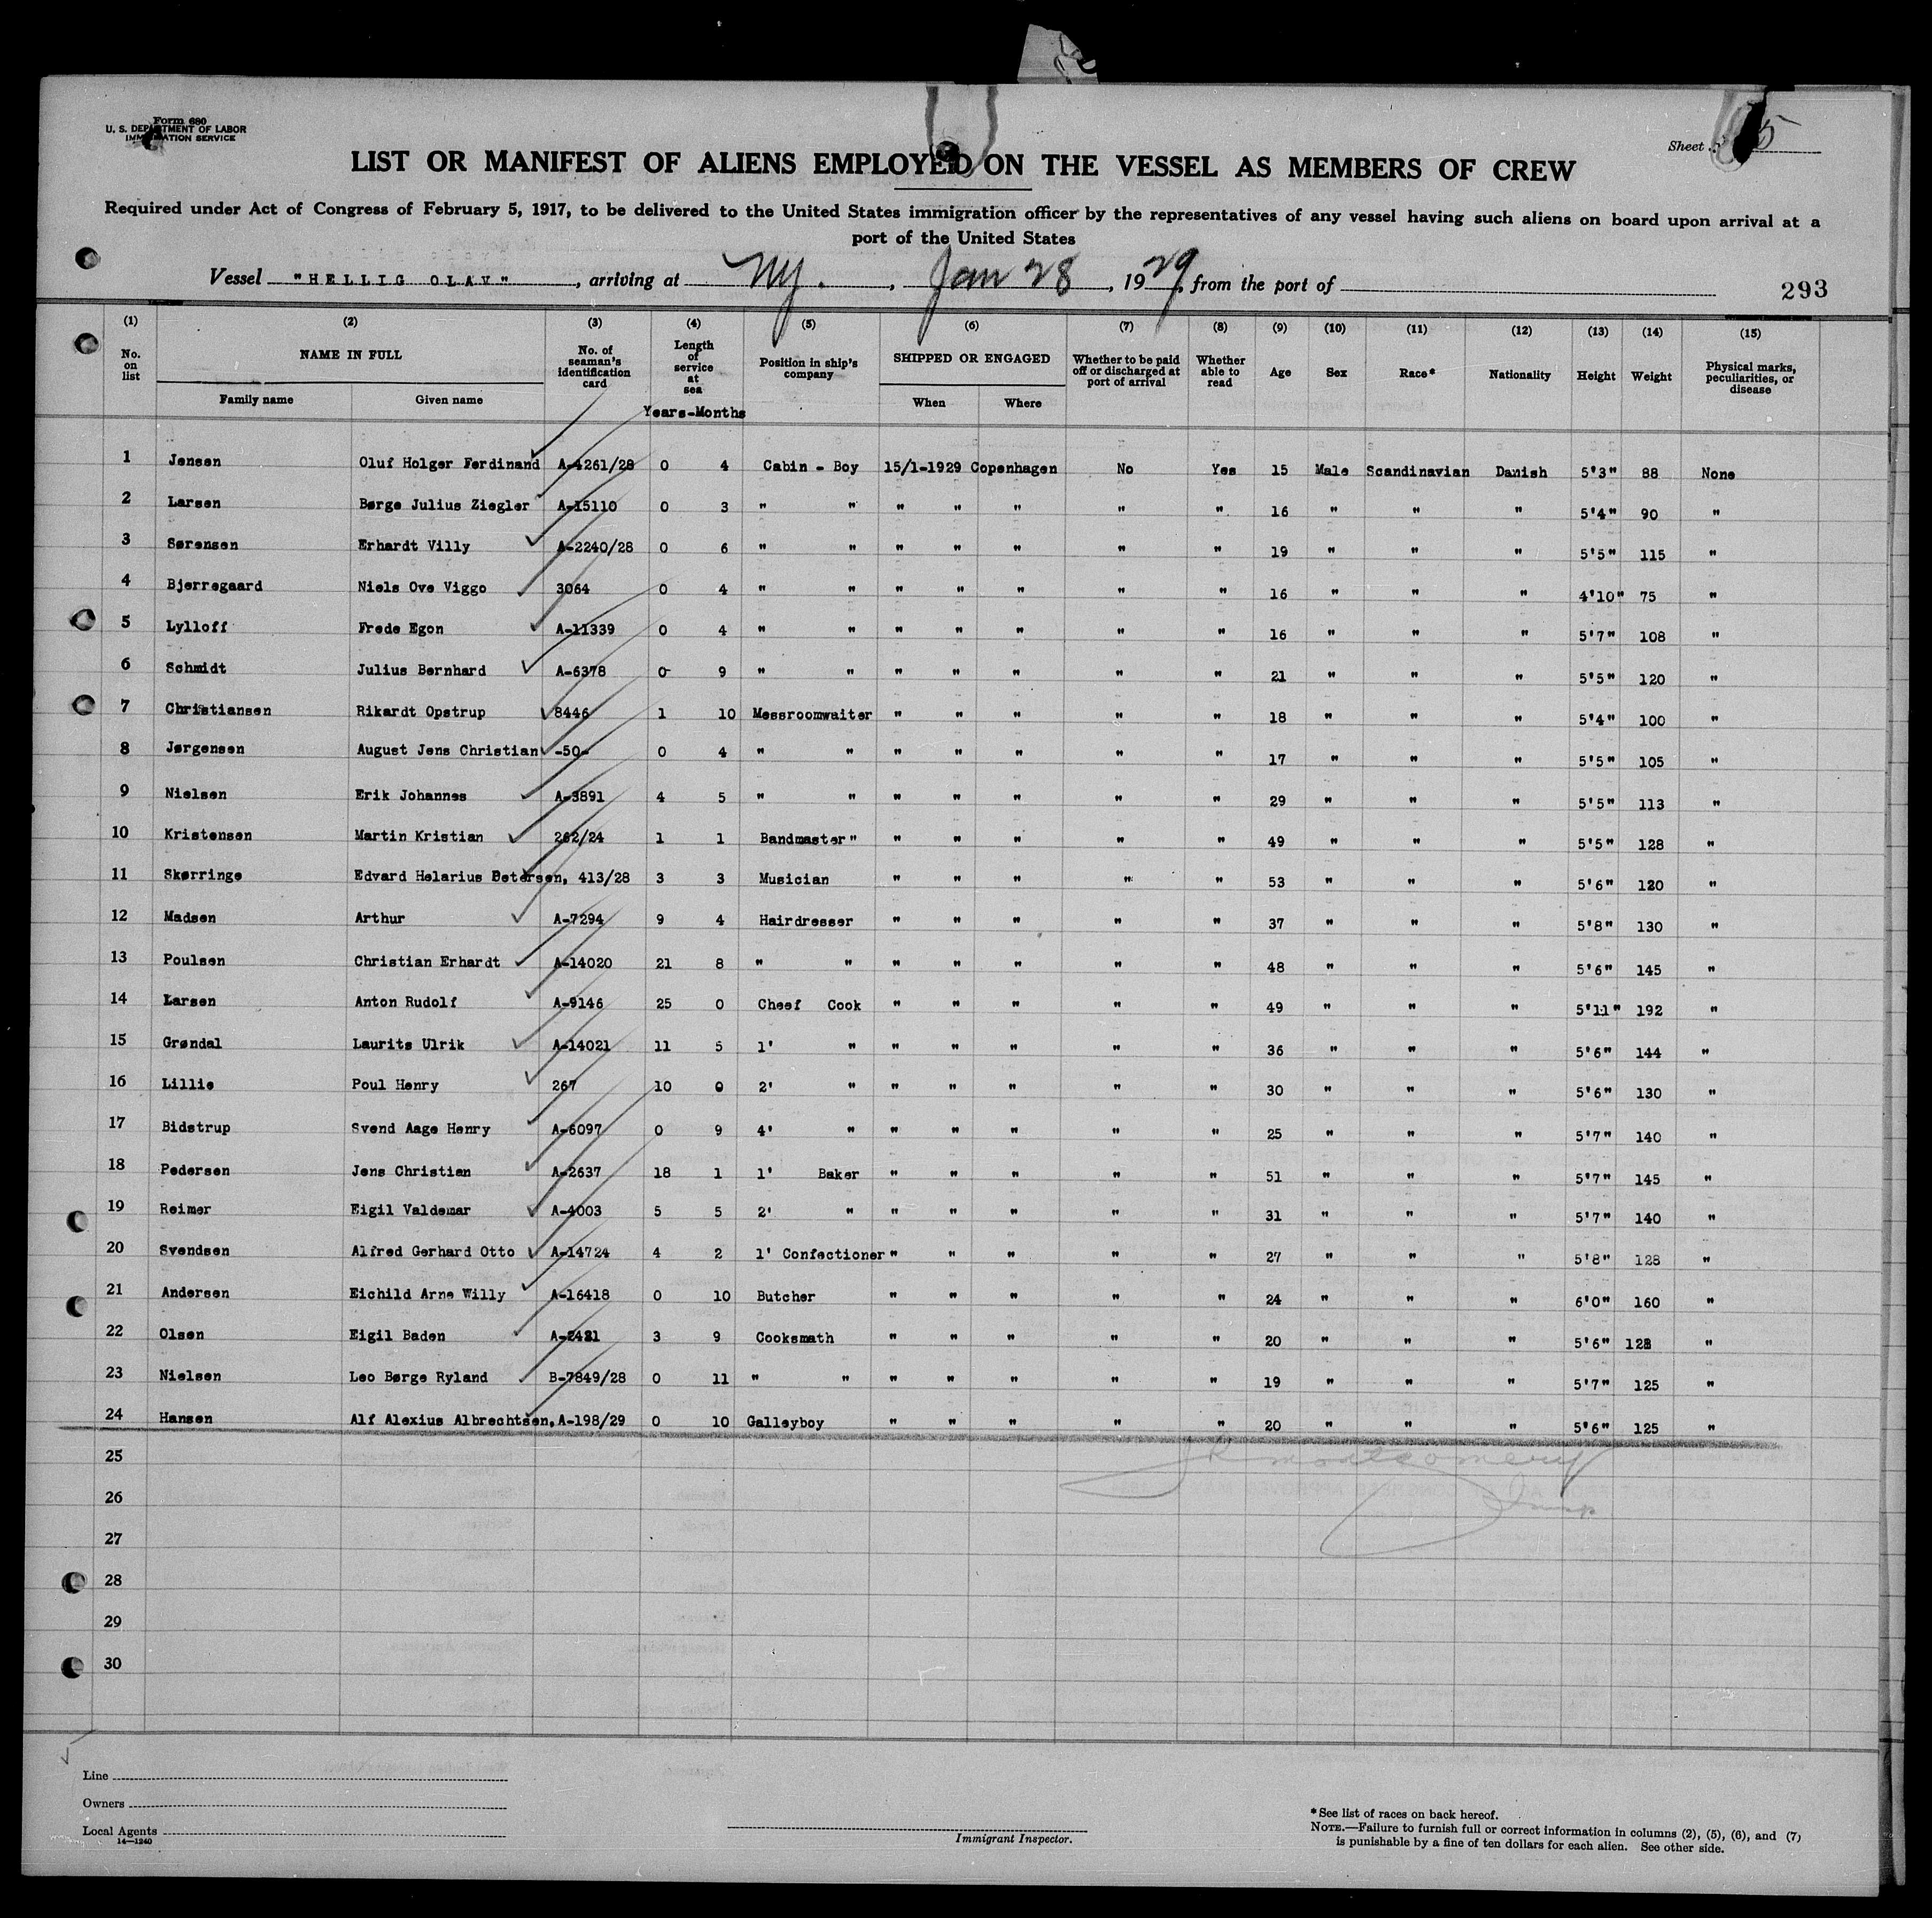 Form 680
U. S. DEPARTMENT OF LABOR
IMMIGRATION SERVICE
Sheet 5
LIST OR MANIFEST OF ALIENS EMPLOYED ON THE VESSEL AS MEMBERS OF CREW
Required under Act of Congress of February 5, 1917, to be delivered to the United States immigration officer by the representatives of any vessel having such aliens on board upon arrival at a
port of the United States
Vessel "HELLIG OLAV", arriving at NY., Jan 28, 1929, from the port of
293
(1) (2) (3) (4) (5) (6) (7) (8) (9) (10) (11) (12) (13) (14) (15)
No. on list NAME IN FULL No. of seaman's identification card Length of service at sea Position in ship's company SHIPPED OR ENGAGED Whether to be paid off or discharged at port of arrival Whether able to read Age Sex Race* Nationality Height Weight Physical marks, peculiarities, or disease
Family name Given name Years-Months When Where
1 Jensen Oluf Holger Ferdinand A-4261/28 0 4 Cabin - Boy 15/1-1929 Copenhagen No Yes 15 Male Scandinavian Danish 5'3" 88 None
2 Larsen Børge Julius Ziegler A-15110 0 3 " " " " " " " 16 " " " 5'4" 90 "
3 Sørensen Erhardt Villy A-2240/28 0 6 " " " " " " " 19 " " " 5'5" 115 "
4 Bjerregaard Niels Ove Viggo 3064 0 4 " " " " " " " 16 " " " 4'10" 75 "
5 Lylloff Frede Egon A-11339 0 4 " " " " " " " 16 " " " 5'7" 108 "
6 Schmidt Julius Bernhard A-6378 0 9 " " " " " " " 21 " " " 5'5" 120 "
7 Christiansen Rikardt Opstrup 8446 1 10 Messroomwaiter " " " " " 18 " " " 5'4" 100 "
8 Jørgensen August Jens Christian -50- 0 4 " " " " " " " 17 " " " 5'5" 105 "
9 Nielsen Erik Johannes A-3891 4 5 " " " " " " " 29 " " " 5'5" 113 "
10 Kristensen Martin Kristian 262/24 1 1 Bandmaster" " " " " " 49 " " " 5'5" 128 "
11 Skørringe Edvard Helarius Petersen, 413/28 3 3 Musician " " " " " 53 " " " 5'6" 120 "
12 Madsen Arthur A-7294 9 4 Hairdresser " " " " " 37 " " " 5'8" 130 "
13 Poulsen Christian Erhardt A-14020 21 8 " " " " " " " 48 " " " 5'6" 145 "
14 Larsen Anton Rudolf A-9146 25 0 Cheef Cook " " " " " 49 " " " 5'11" 192 "
15 Grøndal Laurits Ulrik A-14021 11 5 1' " " " " " " 36 " " " 5'6" 144 "
16 Lillie Poul Henry 267 10 0 2' " " " " " " 30 " " " 5'6" 130 "
17 Bidstrup Svend Aage Henry A-6097 0 9 4' " " " " " " 25 " " " 5'7" 140 "
18 Pedersen Jens Christian A-2637 18 1 1' Baker " " " " " 51 " " " 5'7" 145 "
19 Reimer Eigil Valdemar A-4003 5 5 2' " " " " " " 31 " " " 5'7" 140 "
20 Svendsen Alfred Gerhard Otto A-14724 4 2 1' Confectioner " " " " " 27 " " " 5'8" 128 "
21 Andersen Eichild Arne Willy A-16418 0 10 Butcher " " " " " 24 " " " 6'0" 160 "
22 Olsen Eigil Baden 3 9 Cooksmath " " " " " 20 " " " 5'6" "
23 Nielsen Leo Børge Ryland B-7849/28 0 11 " " " " " " " 19 " " " 5'7" 125 "
24 Hansen Alf Alexius Albrechtsen, A-198/29 0 10 Galleyboy " " " " " 20 " " " 5'6" 125 "
25 Montgomery
26
27
28
29
30
Line
Owners
Local Agents
14—1240
Immigrant Inspector.
*See list of races on back hereof.
NOTE.—Failure to furnish full or correct information in columns (2), (5), (6), and (7)
is punishable by a fine of ten dollars for each alien. See other side.